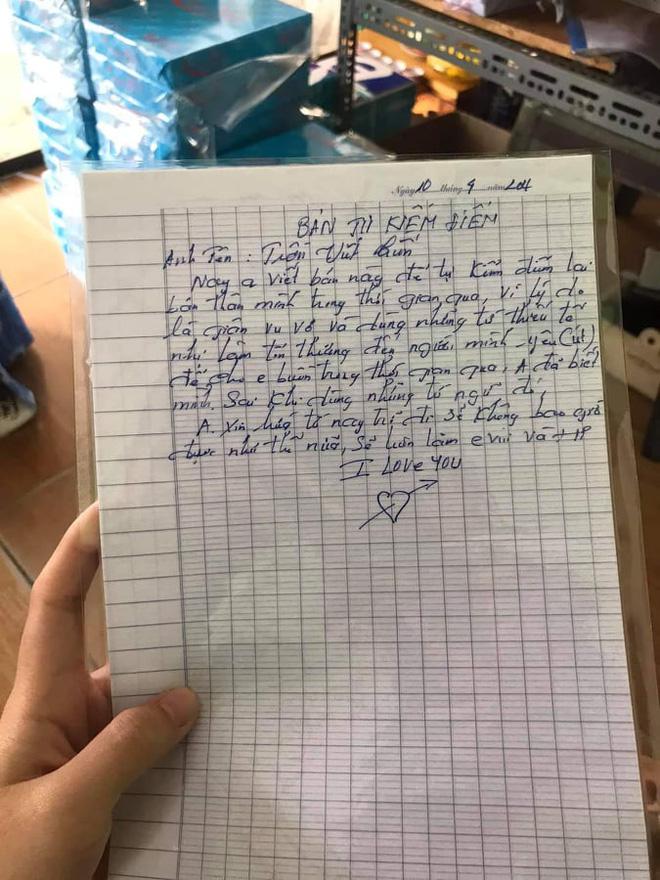 Ngày 10 tháng 9 năm 201
BẢN TỰ KIỂM ĐIỂM
Anh Tên : Trần Viết
Nay a viết bản này để tự kiểm điểm lại
bản thân mình trong thời gian qua, vì lý do
là giận vu vơ và dùng những từ thiếu tế
nhị làm tổn thương đến người mình yêu
để cho e buồn trong thời gian qua, A đã biết
mình Sai khi dùng những từ ngữ đó,
A. Xin hứa từ nay trở đi Sẽ không bao giờ
được như thế nữa, Sẽ luôn làm e vui và + HP
I Love YOU